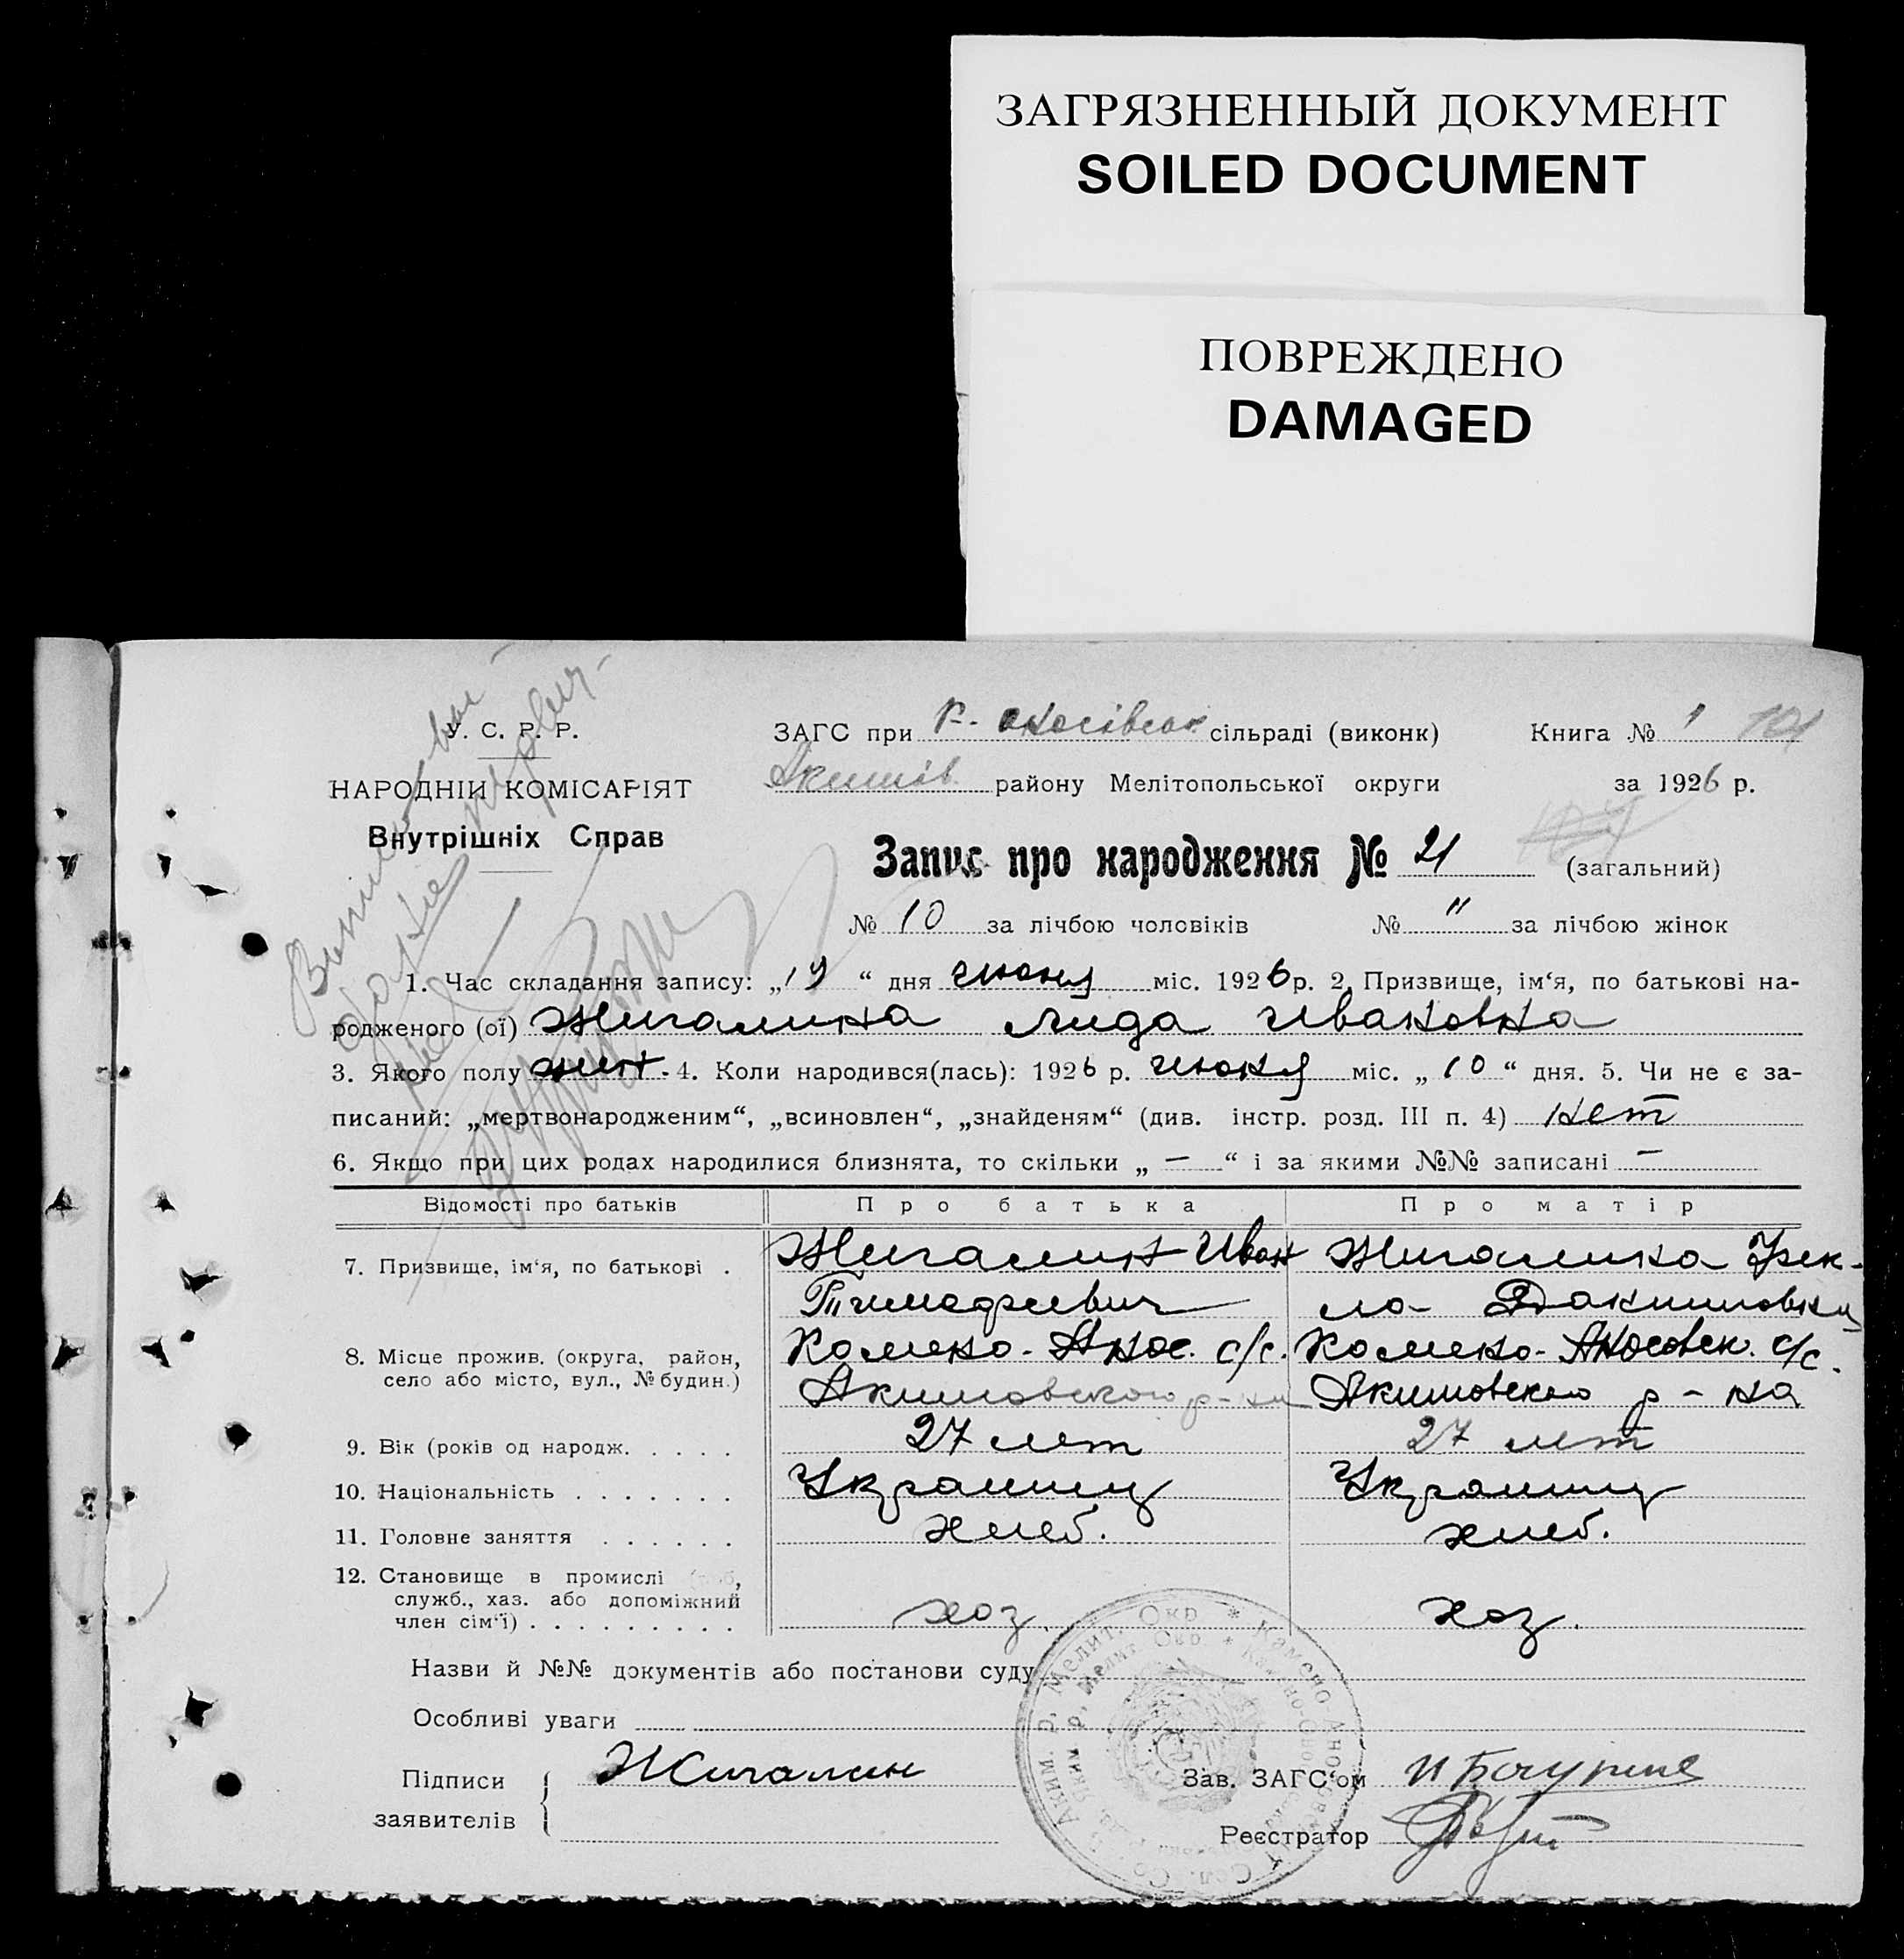 ЗАГРЯЗНЕННЫЙ ДОКУМЕНТ
SOILED DOCUMENT
ПОВРЕЖДЕНО
DAMAGED
У. С. Р. Р.
НАРОДНІЙ КОМІСАРІЯТ
Внутрішніх Справ
ЗАГС при К. Аносівськ. сільраді (виконк)
Книга № 1 104
Якимів. району Мелітопольської округи
за 1926 р.
Запис про народження № 21 (загальний)
№ 10 за лічбою чоловіків № " за лічбою жінок
1. Час складання запису: „19“ дня июня міс. 1926 р. 2. Призвище, ім‘я, по батькові на-
родженого (ої) Жигалина Лида Ивановна
3. Якого полу жен. 4. Коли народився(лась): 1926 р. июня міс. „10“ дня. 5. Чи не є за-
писаний: „мертвонародженим“, „всиновлен“, „знайденям“ (див. інстр. розд. III п. 4) нет
6. Якщо при цих родах народилися близнята, то скільки „ — “ і за якими №№ записані —
Відомості про батьків Про батька Про матір
7. Призвище, ім‘я, по батькові . Жигалин Иван Жигалина Фек-
Тимофеевич ла Якимовна
8. Місце прожив. (округа, район, Камено-Анос. с/с. Камено-Аносовск. с/с.
село або місто, вул., № будин.) Акимовского р-на Акимовского р-на
9. Вік (років од народж. . . . . 27 лет 27 лет
10. Національність . . . . . . . Украинц Украинц
11. Головне заняття . . . . . . хлеб. хлеб.
12. Становище в промислі (роб,
служб., хаз. або допоміжний
член сім‘ї) . . . . . . . . . хоз. хоз.
Назви й №№ документів або постанови суду
Особливі уваги
Підписи
заявителів
Жигалин
Зав. ЗАГС‘ом
Реєстратор